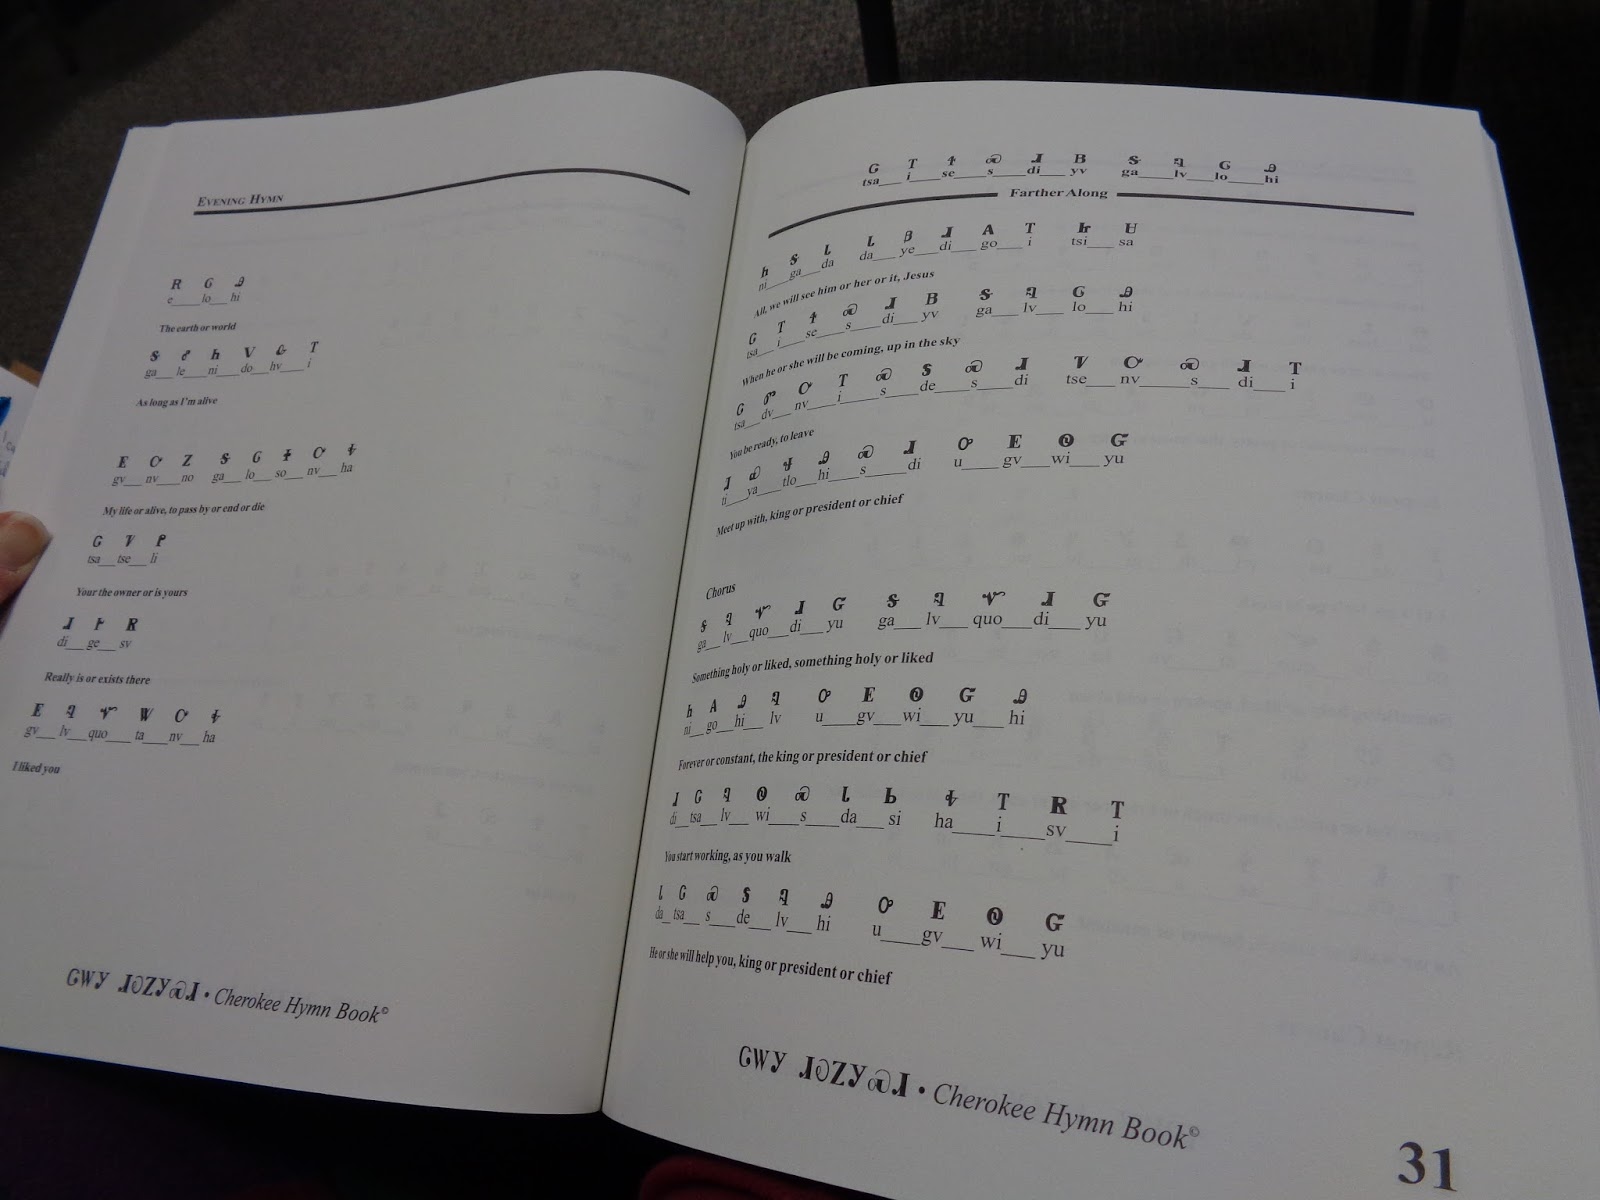 EVENING HYMN
Ꭱ Ꮆ Ꭿ
e____lo___hi
The earth or world
Ꭶ Ꮄ Ꮒ Ꮩ Ꮂ Ꭲ
ga___le___ni___do___hv___i
As long as I'm alive
Ꭼ Ꮕ Ꮓ Ꭶ Ꮆ Ꮠ Ꮕ Ꭽ
gv___nv___no ga___lo___so___nv___ha
My life or alive, to pass by or end or die
Ꮳ Ꮴ Ꮅ
tsa___tse___li
Your the owner or is yours
Ꮧ Ꭸ Ꮢ
di___ge___sv
Really is or exists there
Ꭼ Ꮈ Ꮙ Ꮤ Ꮕ Ꭽ
gv___lv___quo___ta___nv___ha
I liked you
ᏣᎳᎩ ᏗᎧᏃᎩᏍᏗ • Cherokee Hymn Book©
Ꮳ Ꭲ Ꮞ Ꮝ Ꮧ Ᏼ Ꭶ Ꮈ Ꮆ Ꭿ
tsa___i___se___s___di___yv ga___lv___lo___hi
Farther Along
Ꮒ Ꭶ Ꮣ Ꮣ Ᏸ Ꮧ Ꭺ Ꭲ Ꮵ Ꮜ
ni___ga___da da___ye___di___go___i tsi___sa
All, we will see him or her or it, Jesus
Ꮳ Ꭲ Ꮞ Ꮝ Ꮧ Ᏼ Ꭶ Ꮈ Ꮆ Ꭿ
tsa___i___se___s___di___yv ga___lv___lo___hi
When he or she will be coming, up in the sky
Ꮳ Ꮫ Ꮕ Ꭲ Ꮝ Ꮥ Ꮝ Ꮧ Ꮴ Ꮕ Ꮝ Ꮧ Ꭲ
tsa___dv___nv___i___s___de___s___di tse___nv___s___di___i
You be ready, to leave
Ꮧ Ꮿ Ꮰ Ꭿ Ꮝ Ꮧ Ꭴ Ꭼ Ꮻ Ᏻ
ti___ya___tlo___hi___s___di u___gv___wi___yu
Meet up with, king or president or chief
Chorus
Ꭶ Ꮈ Ꮙ Ꮧ Ᏻ Ꭶ Ꮈ Ꮙ Ꮧ Ᏻ
ga___lv___quo___di___yu ga___lv___quo___di___yu
Something holy or liked, something holy or liked
Ꮒ Ꭺ Ꭿ Ꮈ Ꭴ Ꭼ Ꮻ Ᏻ Ꭿ
ni___go___hi___lv u___gv___wi___yu___hi
Forever or constant, the king or president or chief
Ꮧ Ꮳ Ꮈ Ꮻ Ꮝ Ꮣ Ꮟ Ꭽ Ꭲ Ꮢ Ꭲ
di__tsa__lv___wi___s___da___si ha____i____sv____i
You start working, as you walk
Ꮣ Ꮳ Ꮝ Ꮥ Ꮈ Ꭿ Ꭴ Ꭼ Ꮻ Ᏻ
da_tsa__s___de__lv___hi u____gv___wi___yu
He or she will help you, king or president or chief
ᏣᎳᎩ ᏗᎧᏃᎩᏍᏗ • Cherokee Hymn Book©
31